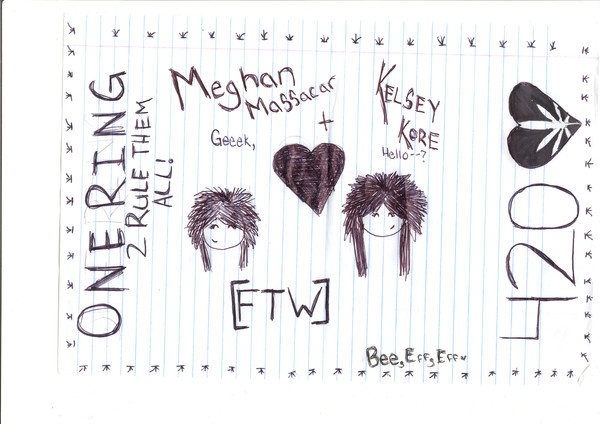 ONE RING
2 RULE THEM
ALL!
Meghan
Massacar
+
KELSEY
KORE
Geeek,
Hello--?
[FTW]
Bee, Eff, Eff
420